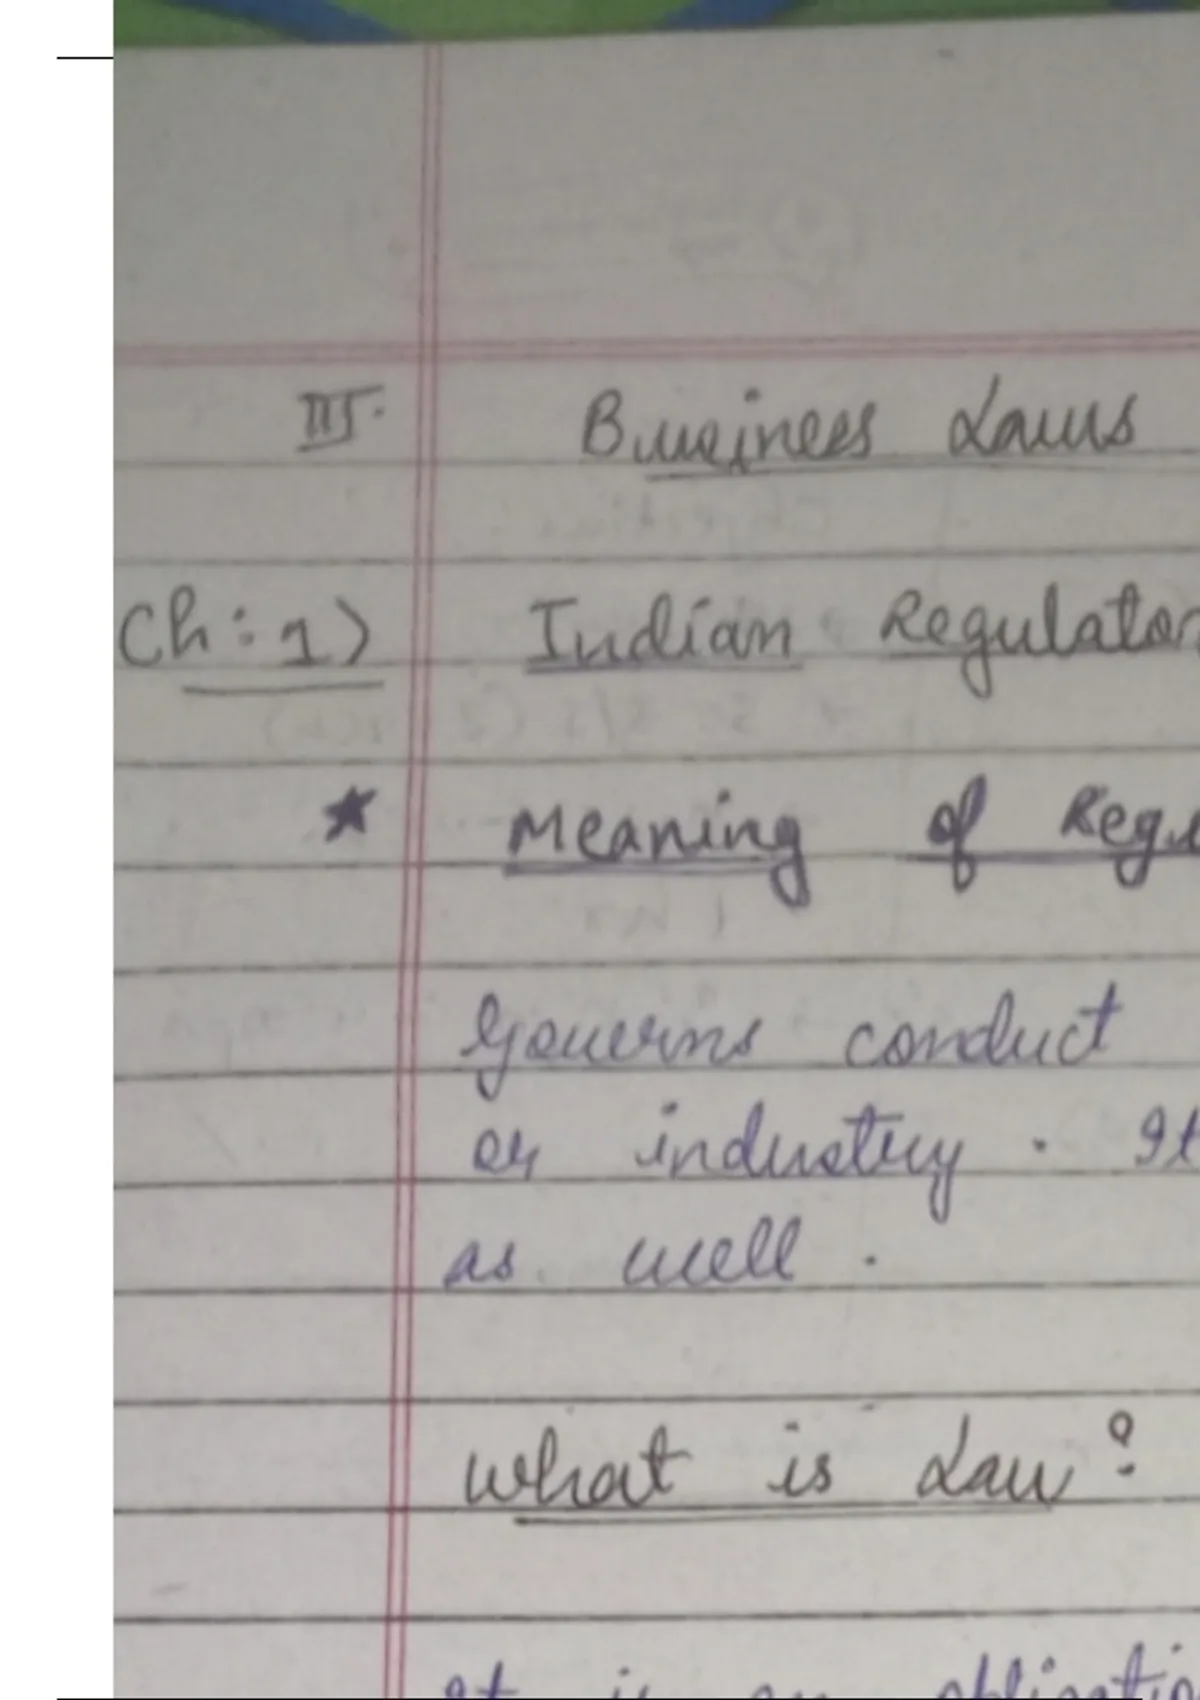 III. Business Laws
Ch:1) Indian Regulator
★ Meaning of Regu
Governs conduct
or industry. It
as well.
What is Law?
It is an obligatio